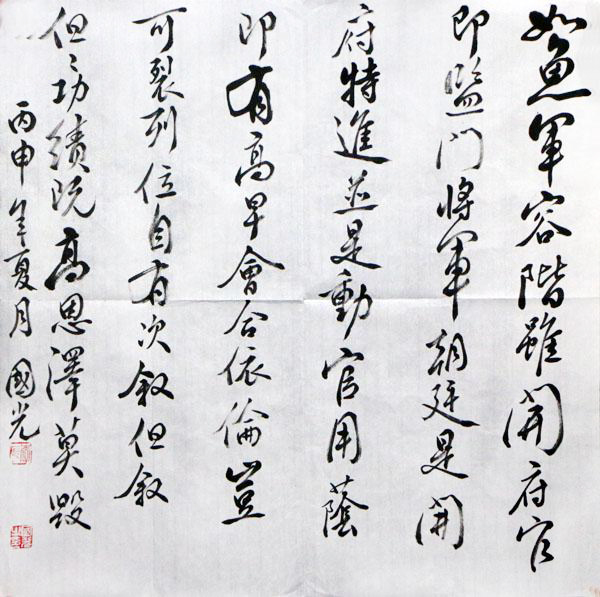 如魚軍容階雖開府官
即監門將軍朝廷是開
府特進並是動官用蔭
即有高早會合依倫豈
可裂列位自有次叙但叙
但以功績既高恩澤莫毀
丙申年夏月 國光